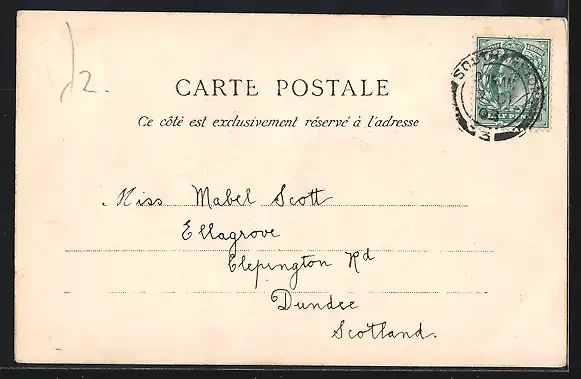 2.
CARTE POSTALE
Ce côté est exclusivement réservé à l'adresse
33
HALFPENNY
Miss Mabel Scott
Ellagrove
Clepington Rd
Dundee
Scotland.